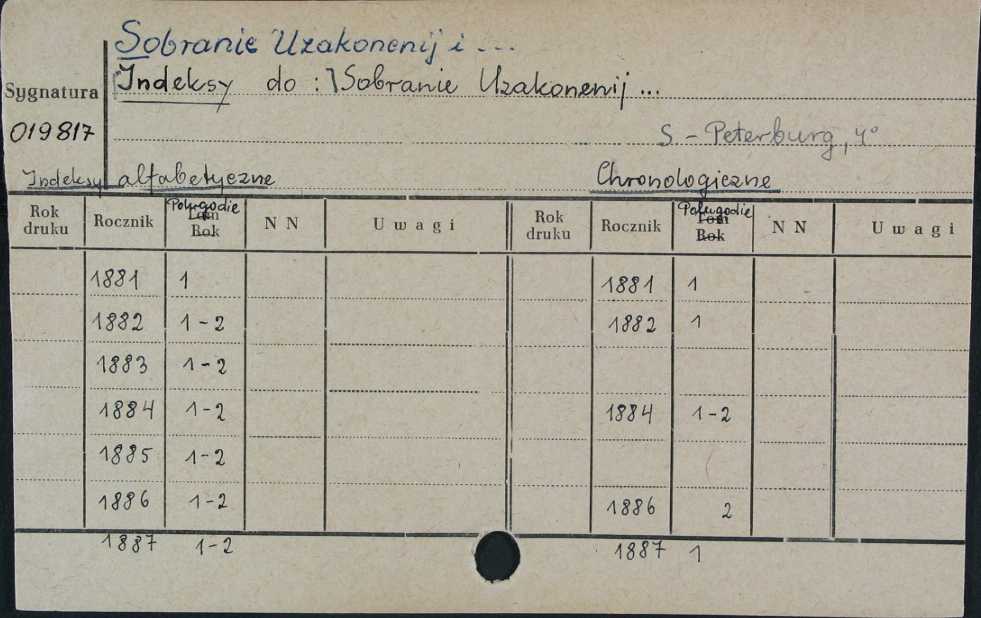 Sobranie Uzakonenij i ...
Sygnatura
[Indeksy do:] Sobranie Uzakonenij ...
019817
S.-Peterburg, 4°
Indeksy alfabetyczne Chronologiczne
Rok druku Rocznik Poługodie Tom Rok NN Uwagi Rok druku Rocznik Poługodie Tom Rok NN Uwagi
1881 1 1881 1
1882 1-2 1882 1
1883 1-2
1884 1-2 1884 1-2
1885 1-2
1886 1-2 1886 2
1887 1-2 1887 1